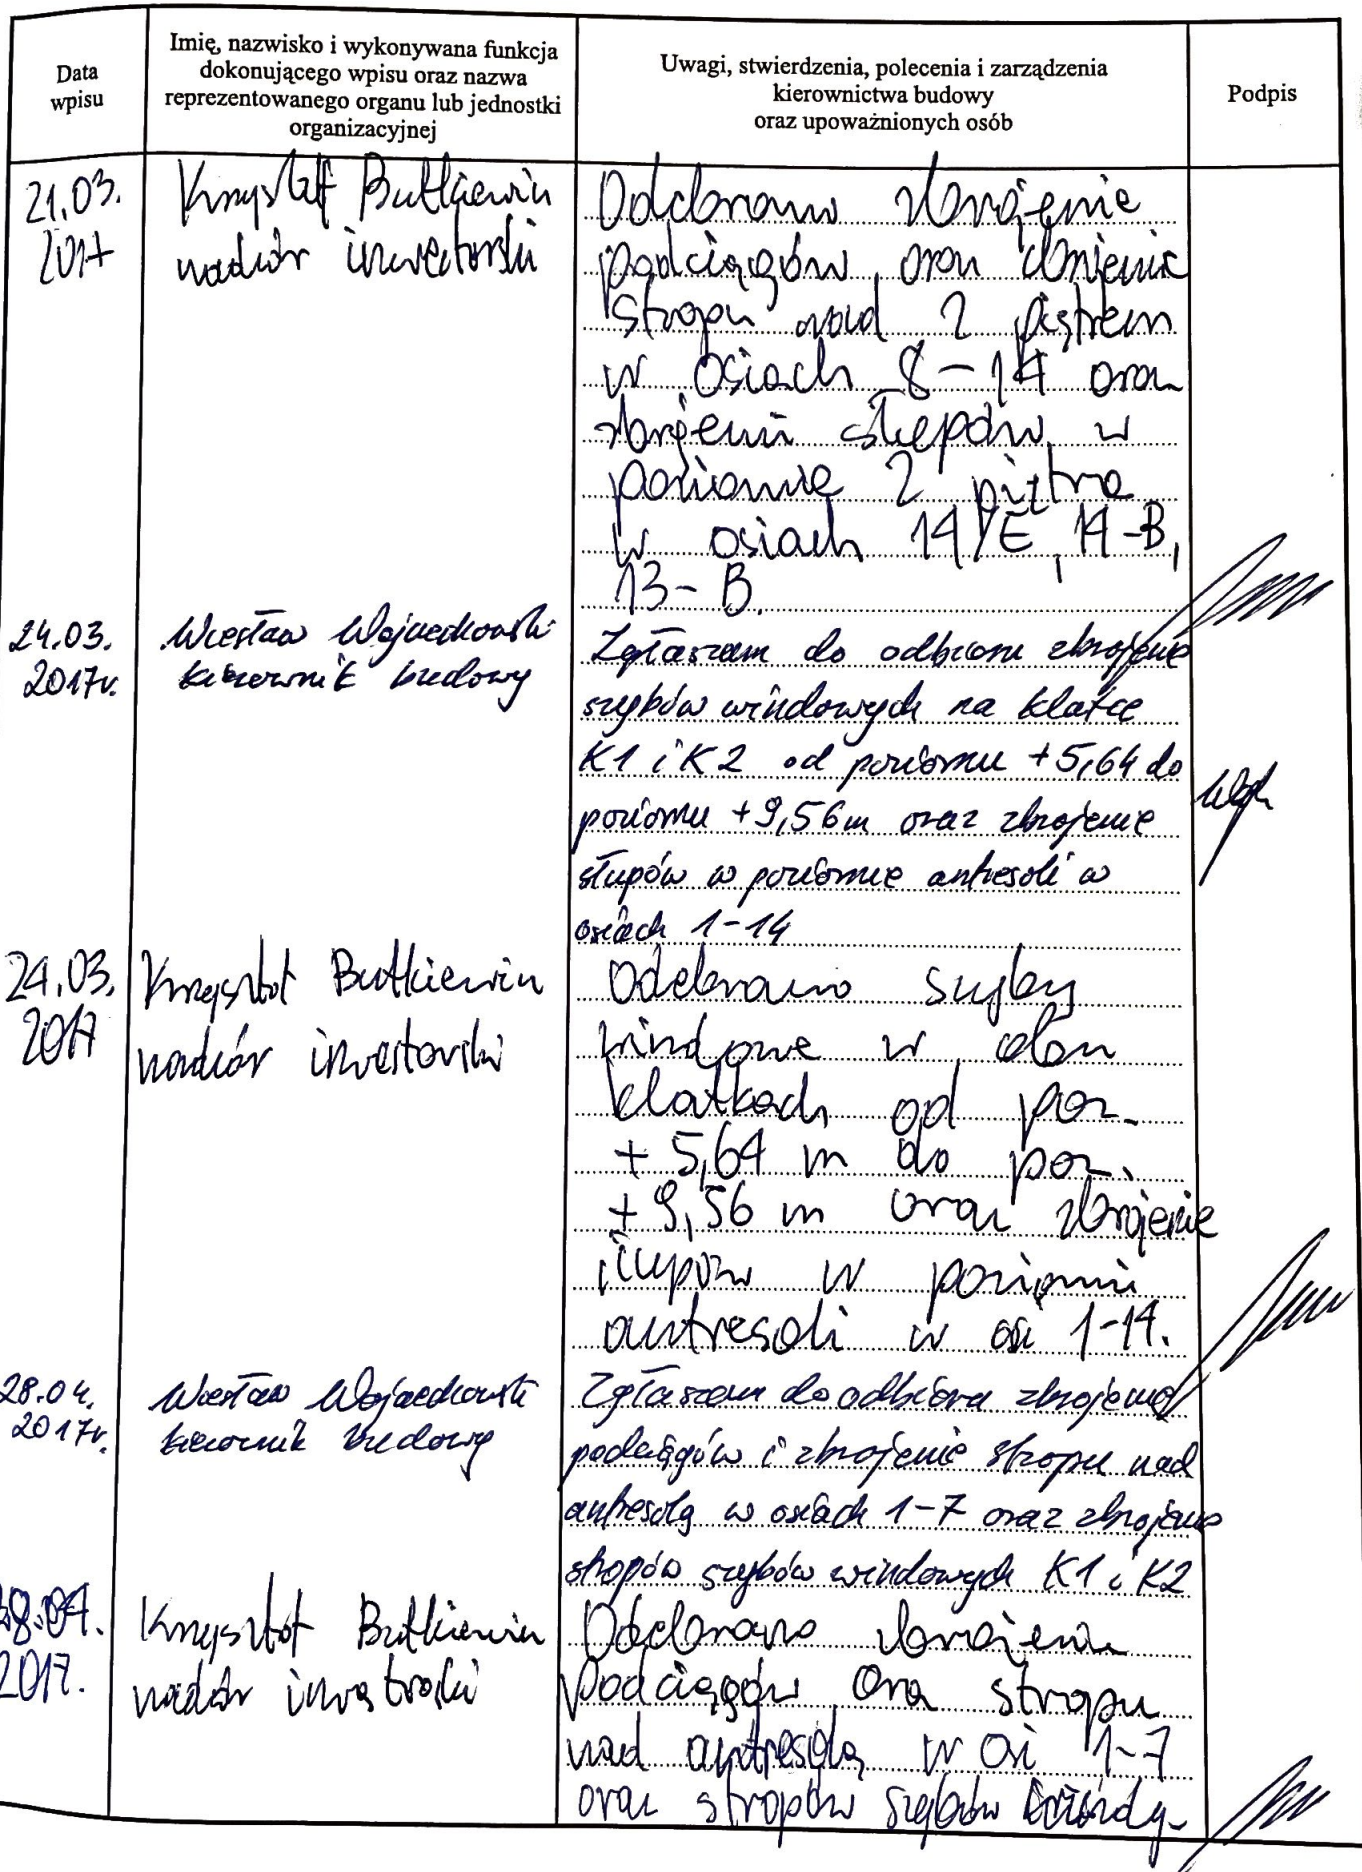 Data
wpisu
Imię, nazwisko i wykonywana funkcja
dokonującego wpisu oraz nazwa
reprezentowanego organu lub jednostki
organizacyjnej
Uwagi, stwierdzenia, polecenia i zarządzenia
kierownictwa budowy
oraz upoważnionych osób
Podpis
21.03.
2017
Krzysztof Butkiewicz
nadzór inwestorski
Odebrano zbrojenie
podciągów oraz
stropu nad 2 piętrem
w osiach 8-14 oraz
zbrojenie słupów w
poziomie 2 piętra
w osiach 14/E, 14-B,
13-B.
24.03.
2017r.
Wiesław Wojciechowski
kierownik budowy
Zgłaszam do odbioru zbrojenie
szybów windowych na klatce
K1 i K2 od poziomu +5,64 do
poziomu +9,56m oraz zbrojenie
słupów w poziomie antresoli w
osiach 1-14
24.03.
2017
Krzysztof Butkiewicz
nadzór inwestorski
Odebrano szyby
windowe w obu
klatkach od poz.
+5,64 m do poz.
+9,56 m oraz zbrojenie
słupów w poziomie
antresoli w osi 1-14.
28.04.
2017r.
Wiesław Wojciechowski
kierownik budowy
Zgłaszam do odbioru zbrojenie
podciągów i zbrojenie stropu nad
antresolą w osiach 1-7 oraz zbrojenie
stropów szybów windowych K1 i K2
28.04.
2017.
Krzysztof Butkiewicz
nadzór inwestorski
Odebrano zbrojenie
podciągów oraz stropu
nad antresolą w osi 1-7
oraz stropów szybów windy-